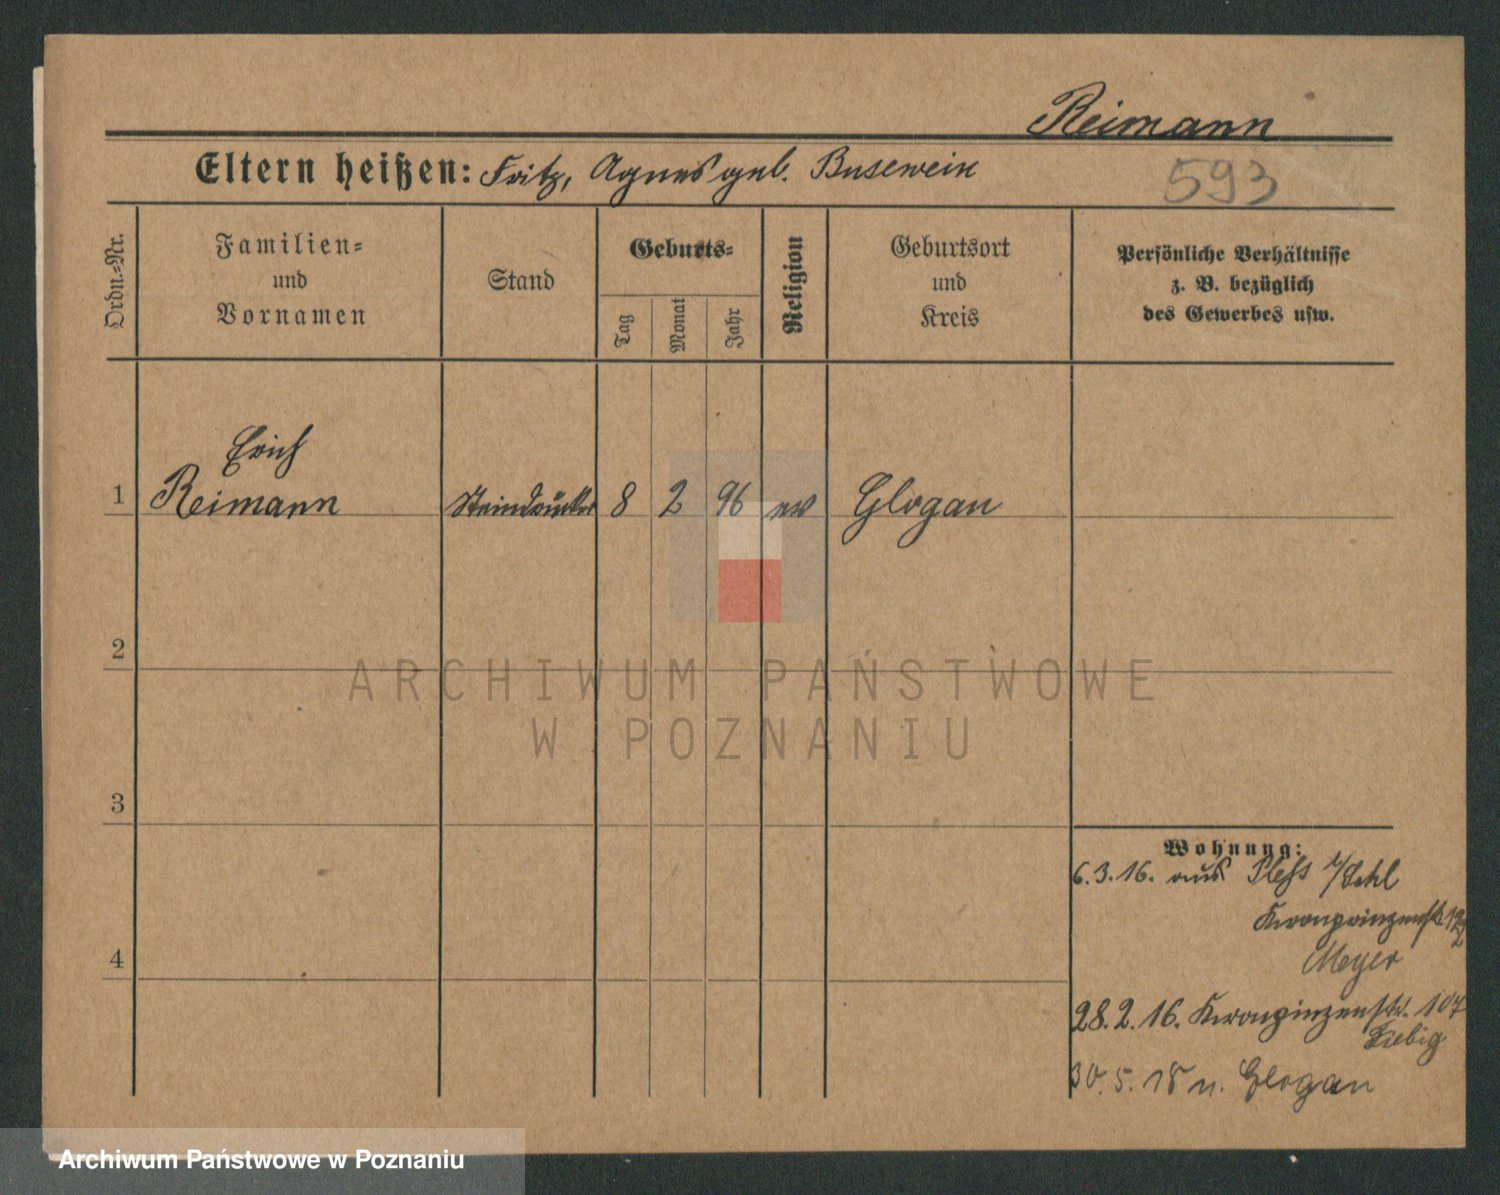 Reimann
Eltern heißen: Fritz, Agnes geb. Busewein
593
Ordn.-Nr.
Familien-
und
Vornamen
Stand
Geburts-
Tag
Monat
Jahr
Religion
Geburtsort
und
Kreis
Persönliche Verhältnisse
z. B. bezüglich
des Gewerbes usw.
Erich
1 Reimann Steindrucker 8 2 96 ev Glogau
2
3
4
Wohnung:
6.3.16. aus Pless /Schl
Kronprinzenstr.
Meyer
28.2.16. Kronpinzenstr. 107
Fiebig
30.5.18 n. Glogau
ARCHIWUM PAŃSTWOWE
W POZNANIU
Archiwum Państwowe w Poznaniu